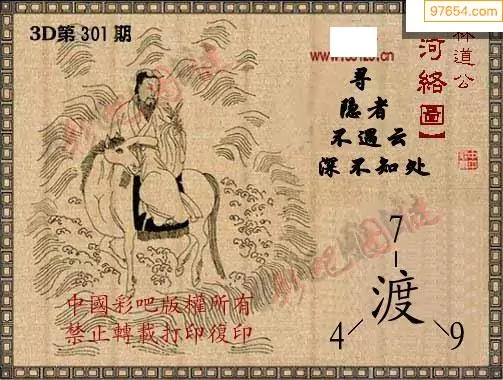 97654.com
3D第301期
林道公
河络圖】
尋
隐者
不遇云
深不知处
7
渡
4
9
中國彩吧版權所有
禁止轉載打印復印